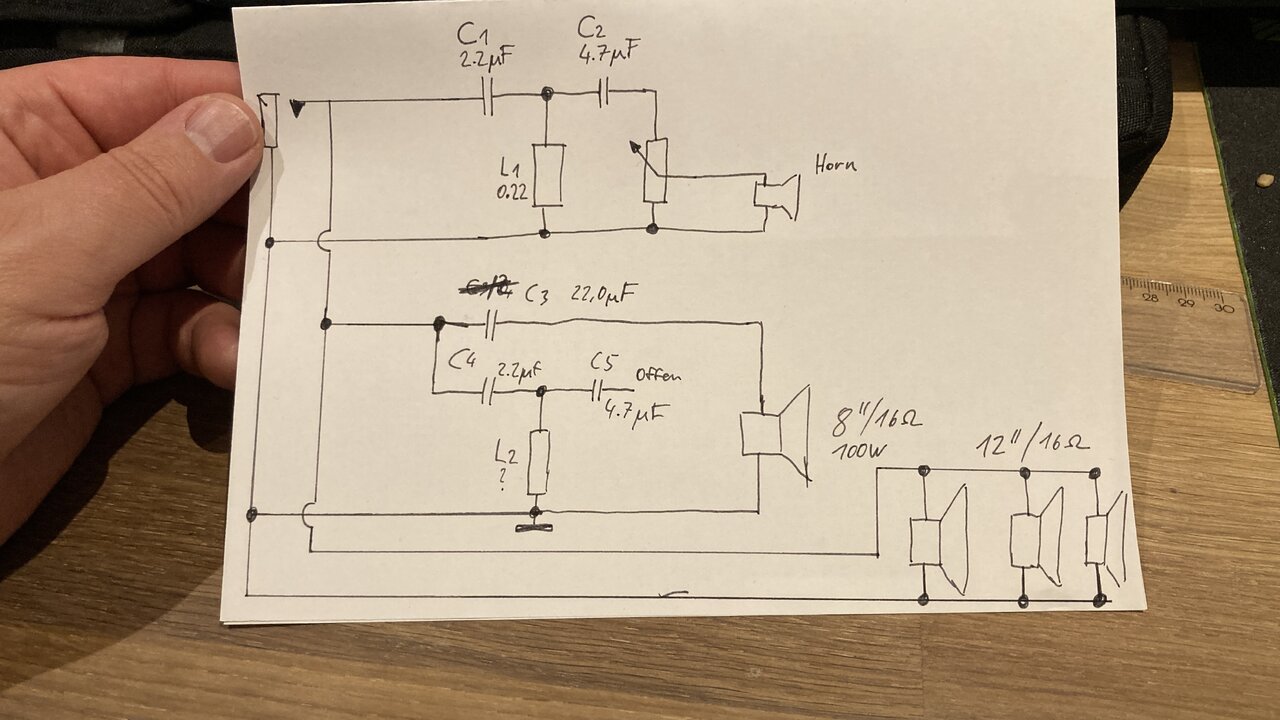 C1
2.2µF
C2
4.7µF
L1
0.22
Horn
C3 22,0µF
C4 2.2µF
C5 Offen
4.7µF
L2
?
8"/16Ω
100W
12"/16Ω
28 29 30